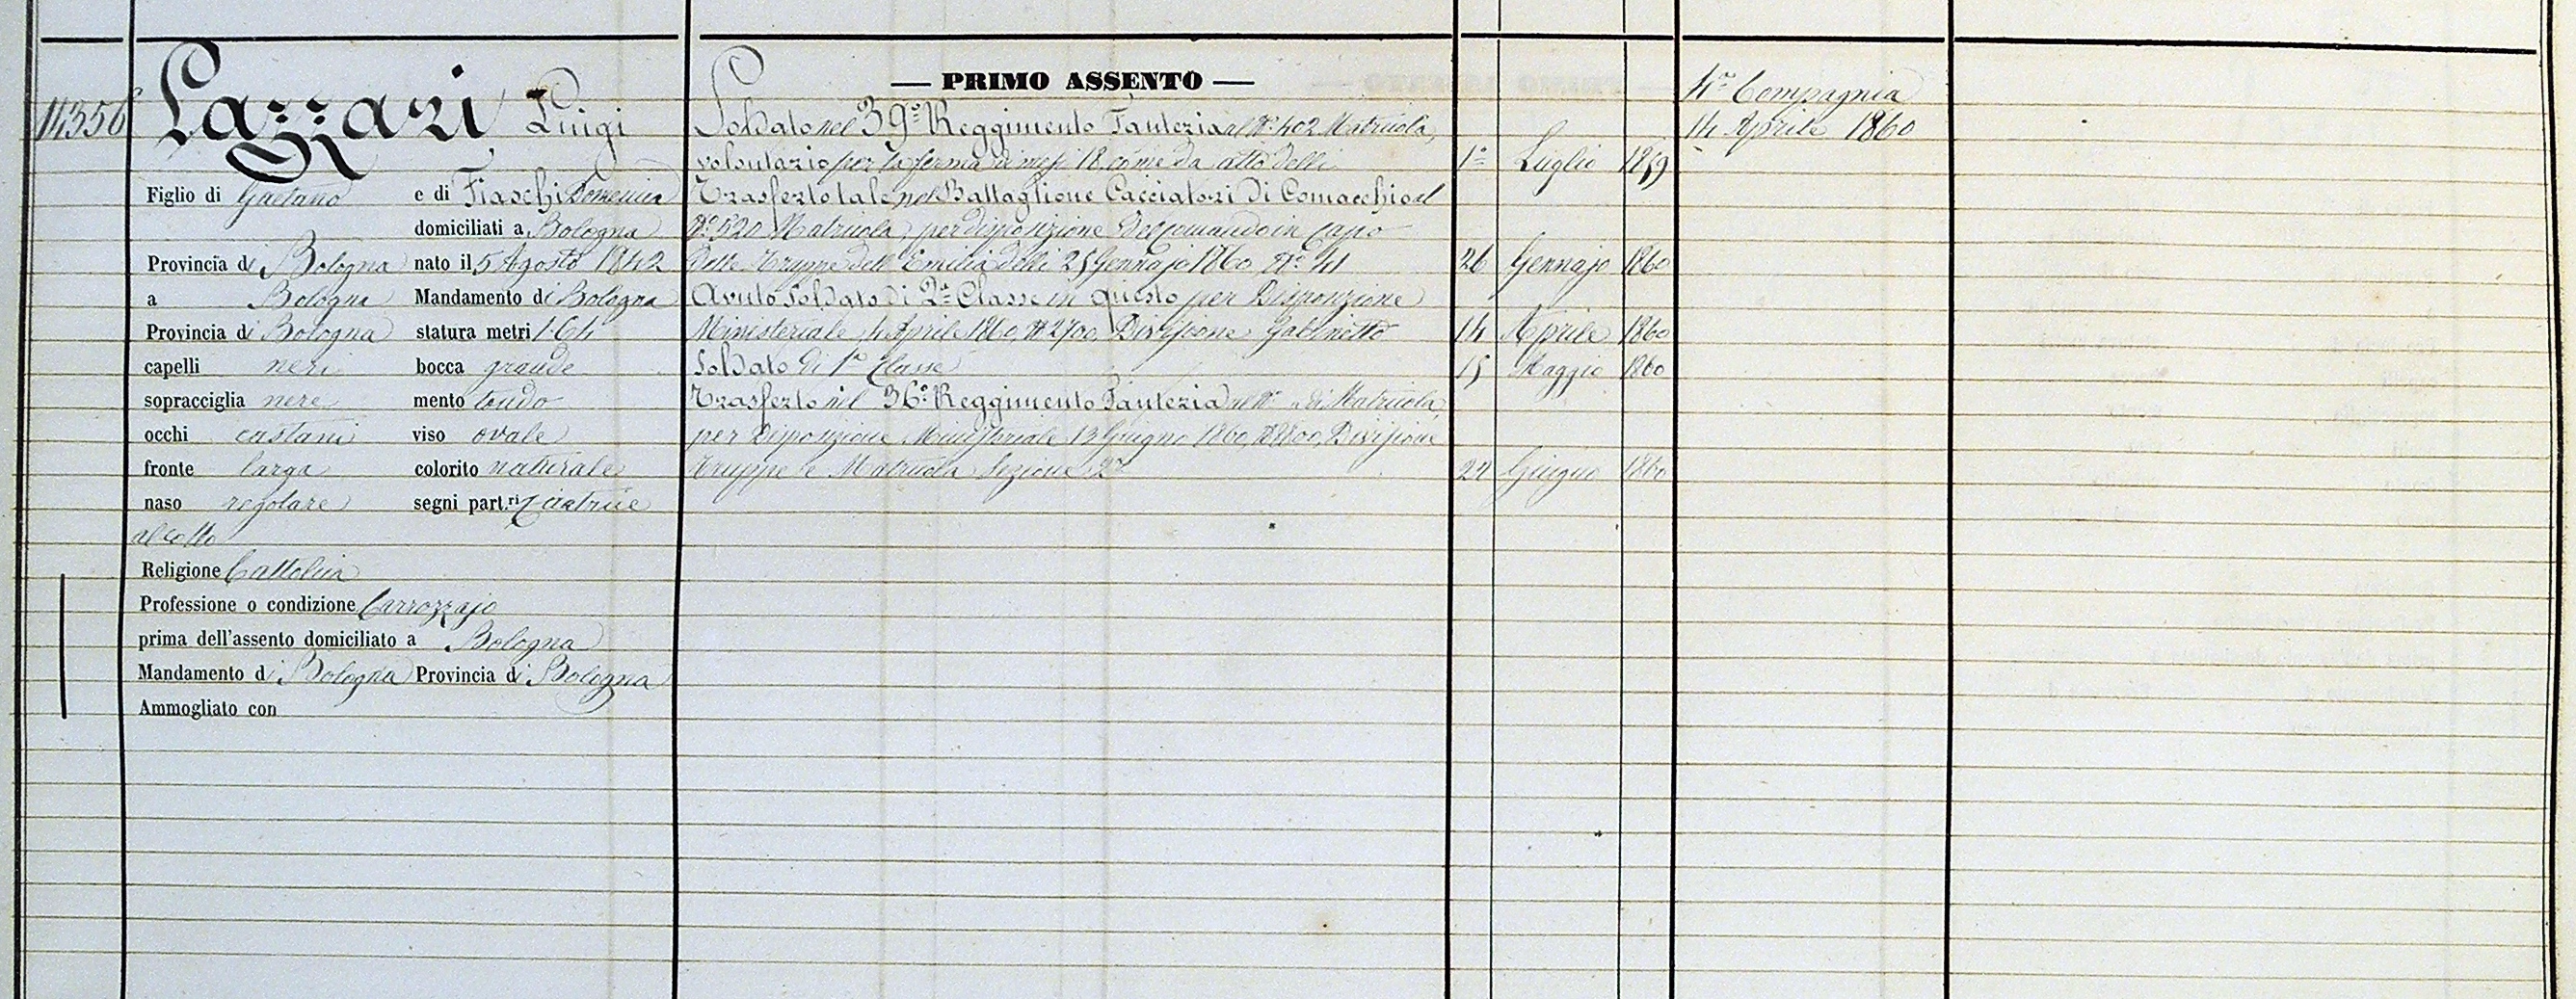 14356
Lazzari Luigi
Figlio di Gaetano e di Fiaschi Domenica
domiciliati a Bologna
Provincia di Bologna nato il 5 Agosto 1842
a Bologna Mandamento di Bologna
Provincia di Bologna statura metri 1.64
capelli neri bocca grande
sopracciglia nere mento tondo
occhi castani viso ovale
fronte larga colorito naturale
naso regolare segni part.ri Cicatrice
al collo
Religione Cattolica
Professione o condizione Carrozzajo
prima dell'assento domiciliato a Bologna
Mandamento di Bologna Provincia di Bologna
Ammogliato con
— PRIMO ASSENTO —
Soldato nel 39º Reggimento Fanteria al Nº 402 Matricola,
volontario per la ferma di mesi 18 come da atto delli 1º Luglio 1859
Trasferto tale nel Battaglione Cacciatori di Comacchio al
Nº 520 Matricola per disposizione del Comando in Capo
delle Truppe dell'Emilia delli 25 Gennajo 1860 Nº 41 26 Gennajo 1860
Avuto Soldato di 2ª Classe in questo per Disposizione
Ministeriale 4 Aprile 1860, Nº 2700, Divisione Gabinetto 14 Aprile 1860
Soldato di 1ª Classe 15 Maggio 1860
Trasferto nel 36º Reggimento Fanteria al Nº di Matricola,
per Disposizione Ministeriale 13 Giugno 1860, Divisione
Truppe e Matricola Sezione 2ª Giugno 1860
4ª Compagnia
14 Aprile 1860